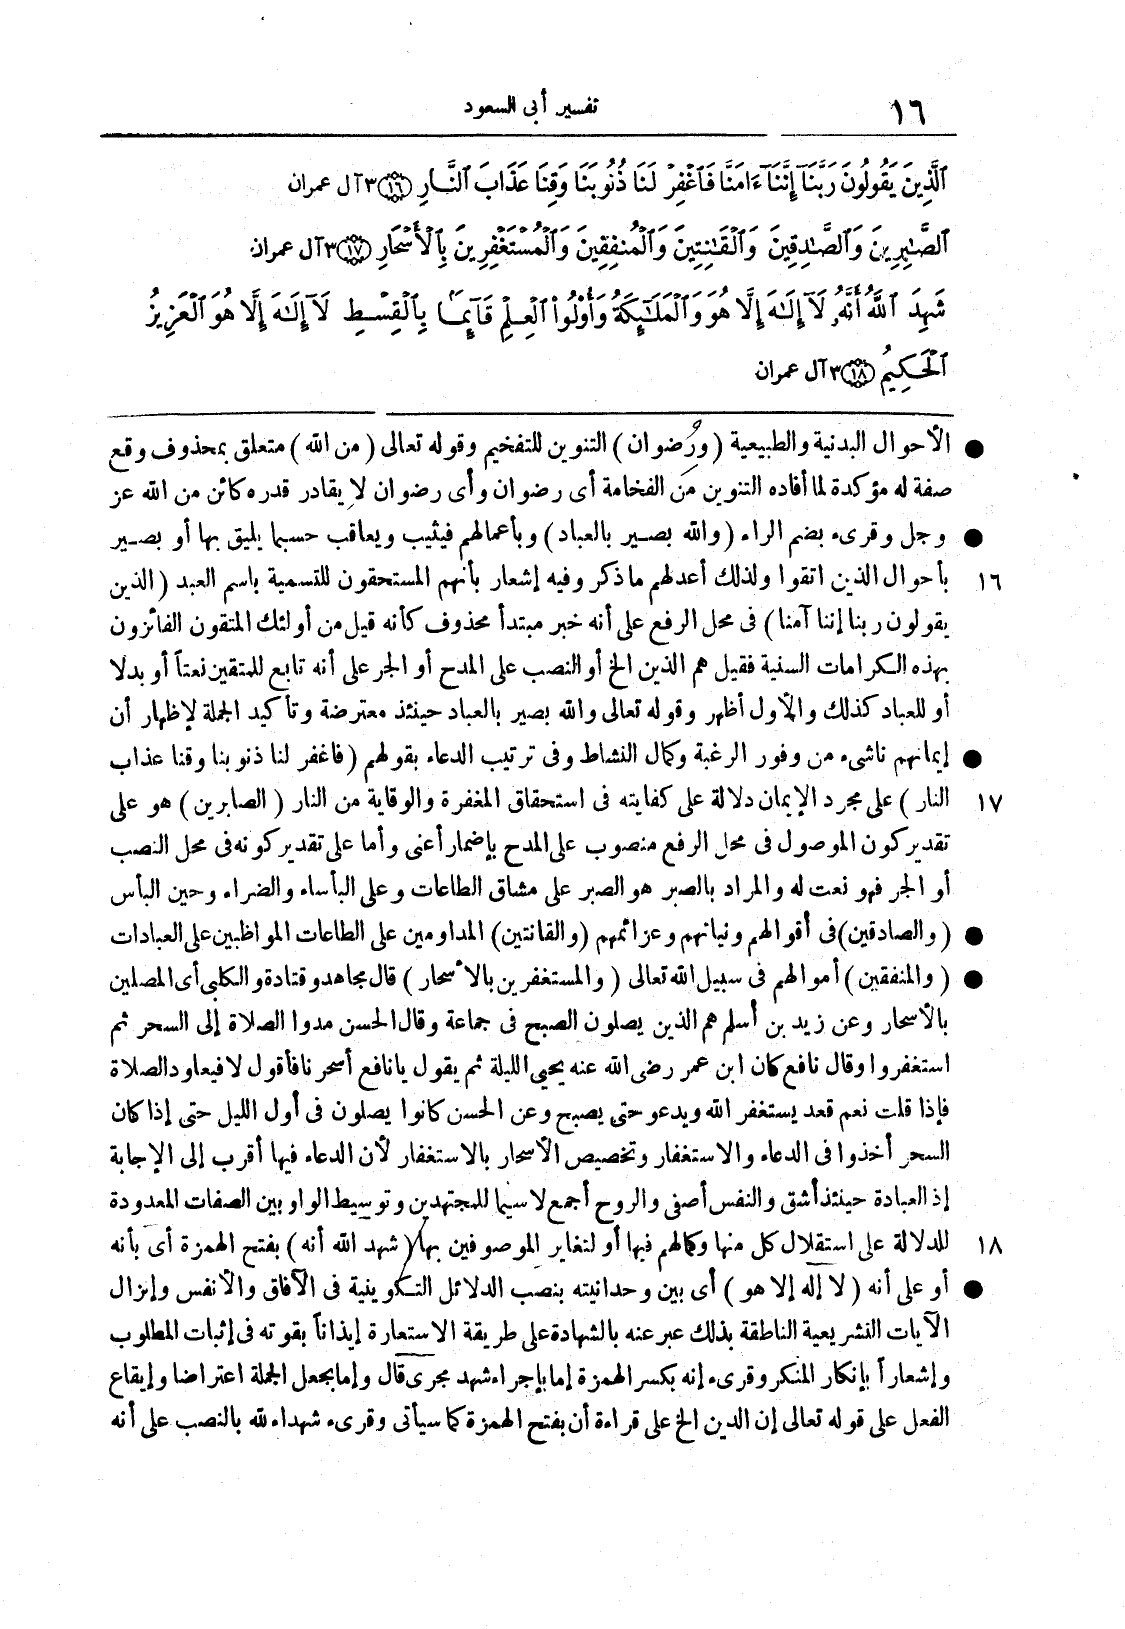 ١٦
تفسير أبى السعود
ٱلَّذِينَ يَقُولُونَ رَبَّنَآ إِنَّنَآ ءَامَنَّا فَٱغْفِرْ لَنَا ذُنُوبَنَا وَقِنَا عَذَابَ ٱلنَّارِ ﴿١٦﴾ ٣ آل عمران
ٱلصَّٰبِرِينَ وَٱلصَّٰدِقِينَ وَٱلْقَٰنِتِينَ وَٱلْمُنفِقِينَ وَٱلْمُسْتَغْفِرِينَ بِٱلْأَسْحَارِ ﴿١٧﴾ ٣ آل عمران
شَهِدَ ٱللَّهُ أَنَّهُۥ لَآ إِلَٰهَ إِلَّا هُوَ وَٱلْمَلَٰٓئِكَةُ وَأُو۟لُوا۟ ٱلْعِلْمِ قَآئِمًۢا بِٱلْقِسْطِ لَآ إِلَٰهَ إِلَّا هُوَ ٱلْعَزِيزُ
ٱلْحَكِيمُ ﴿١٨﴾ ٣ آل عمران
● الأحوال البدنية والطبيعية (ورضوان) التنوين للتفخيم وقوله تعالى (من الله) متعلق بمحذوف وقع
صفة له مؤكدة لما أفاده التنوين من الفخامة أى رضوان وأى رضوان لا يقادر قدره كائن من الله عز
● وجل وقرىء بضم الراء (والله بصير بالعباد) وبأعمالهم فيثيب ويعاقب حسبما يليق بها أو بصير
١٦ بأحوال الذين اتقوا ولذلك أعدلهم ماذكر وفيه إشعار بأنهم المستحقون للتسمية باسم العبد (الذين
يقولون ربنا إننا آمنا) فى محل الرفع على أنه خبر مبتدأ محذوف كأنه قيل من أولئك المتقون الفائزون
بهذه الكرامات السنية فقيل هم الذين الخ أو النصب على المدح أو الجر على أنه تابع للمتقين نعتاً أو بدلا
أو للعباد كذلك والأول أظهر وقوله تعالى والله بصير بالعباد حينئذ معترضة وتأكيد الجملة لإظهار أن
● إيمانهم ناشىء من وفور الرغبة وكمال النشاط وفى ترتيب الدعاء بقولهم (فاغفر لنا ذنوبنا وقنا عذاب
١٧ النار) على مجرد الإيمان دلالة على كفايته فى استحقاق المغفرة والوقاية من النار (الصابرين) هو على
تقدير كون الموصول فى محل الرفع منصوب على المدح بإضمار أعنى وأما على تقدير كونه فى محل النصب
أو الجر فهو نعت له والمراد بالصبر هو الصبر على مشاق الطاعات وعلى البأساء والضراء وحين البأس
● (والصادقين) فى أقوالهم ونياتهم وعزائمهم (والقانتين) المداومين على الطاعات المواظبين على العبادات
● (والمنفقين) أموالهم فى سبيل الله تعالى (والمستغفرين بالأسحار) قال مجاهد وقتادة والكلبى أى المصلين
بالأسحار وعن زيد بن أسلم هم الذين يصلون الصبح فى جماعة وقال الحسن مدوا الصلاة إلى السحر ثم
استغفروا وقال نافع كان ابن عمر رضى الله عنه يحيى الليلة ثم يقول يانافع أسحرنا فأقول لا فيعاود الصلاة
فإذا قلت نعم قعد يستغفر الله ويدعو حتى يصبح وعن الحسن كانوا يصلون فى أول الليل حتى إذا كان
السحر أخذوا فى الدعاء والاستغفار وتخصيص الأسحار بالاستغفار لأن الدعاء فيها أقرب إلى الإجابة
إذ العبادة حينئذ أشق والنفس أصفى والروح أجمع لاسيما للمجتهدين وتوسيط الواو بين الصفات المعدودة
١٨ للدلالة على استقلال كل منها وكمالهم فيها أو لتغاير الموصوفين بها (شهد الله أنه) بفتح الهمزة أى بأنه
● أو على أنه (لا إله إلا هو) أى بين وحدانيته بنصب الدلائل التكوينية فى الآفاق والأنفس وإنزال
الآيات التشريعية الناطقة بذلك عبر عنه بالشهادة على طريقة الاستعارة إيذاناً بقوته فى إثبات المطلوب
وإشعاراً بإنكار المنكر وقرىء إنه بكسر الهمزة إما بإجراء شهد مجرى قال وإما بجعل الجملة اعتراضا وإيقاع
الفعل على قوله تعالى إن الدين الخ على قراءة أن بفتح الهمزة كما سيأتى وقرىء شهداء لله بالنصب على أنه